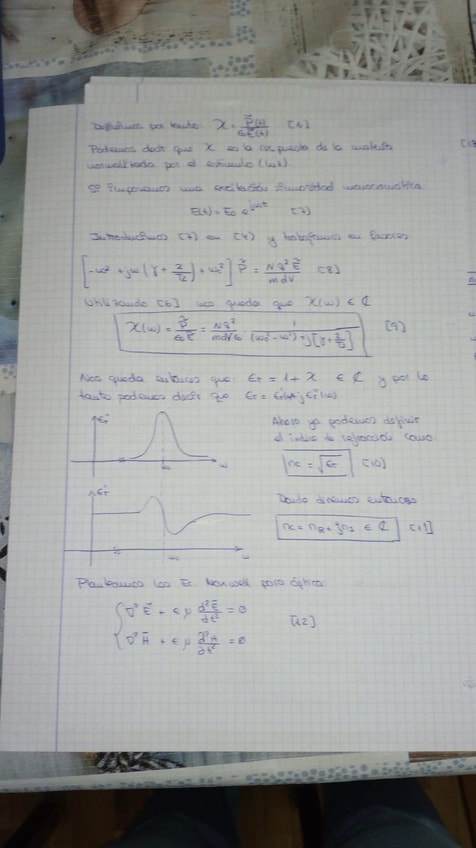 Definimos por tanto: χ = P̃(t) / ε₀Ẽ(t) [6]
Podemos decir que χ es la respuesta de la materia
normalizada por el estímulo (luz).
Si imponemos una excitación sinusoidal monocromática
E(t) = E₀ e^{jωt} [7]
Introducimos [7] en [4] y trabajamos en fasores
[-ω² + jω(γ + 2/τ₂) + ω₀²] P̃ = Nq²Ẽ / mdV [8]
Utilizando [6] nos queda que χ(ω) ∈ ℂ
χ(ω) = P̃ / ε₀Ẽ = Nq² / mdVε₀ · 1 / (ω₀² - ω²) + j[γ + 2/τ₂] [9]
Nos queda entonces que: εr = 1 + χ ∈ ℂ y por lo
tanto podemos decir que εr = εr' + jεr''(ω)
εr''
ω₀ ω
Ahora ya podemos definir
el índice de refracción como:
nc = √εr [10]
εr'
ω₀ ω
Donde tenemos entonces
nc = nR + jnI ∈ ℂ [11]
Planteamos las Ec. Maxwell para óptica:
∇² Ē + ε μ d²Ē/dt² = 0
∇² H̄ + ε μ ∂²H/∂t² = 0 [12]